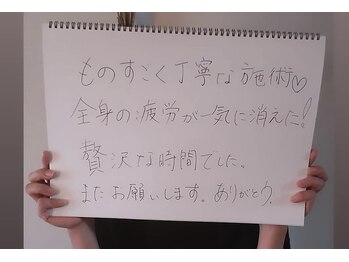 ものすごく丁寧な施術♡
全身の疲労が一気に消えた!
贅沢な時間でした。
またお願いします。ありがとう。